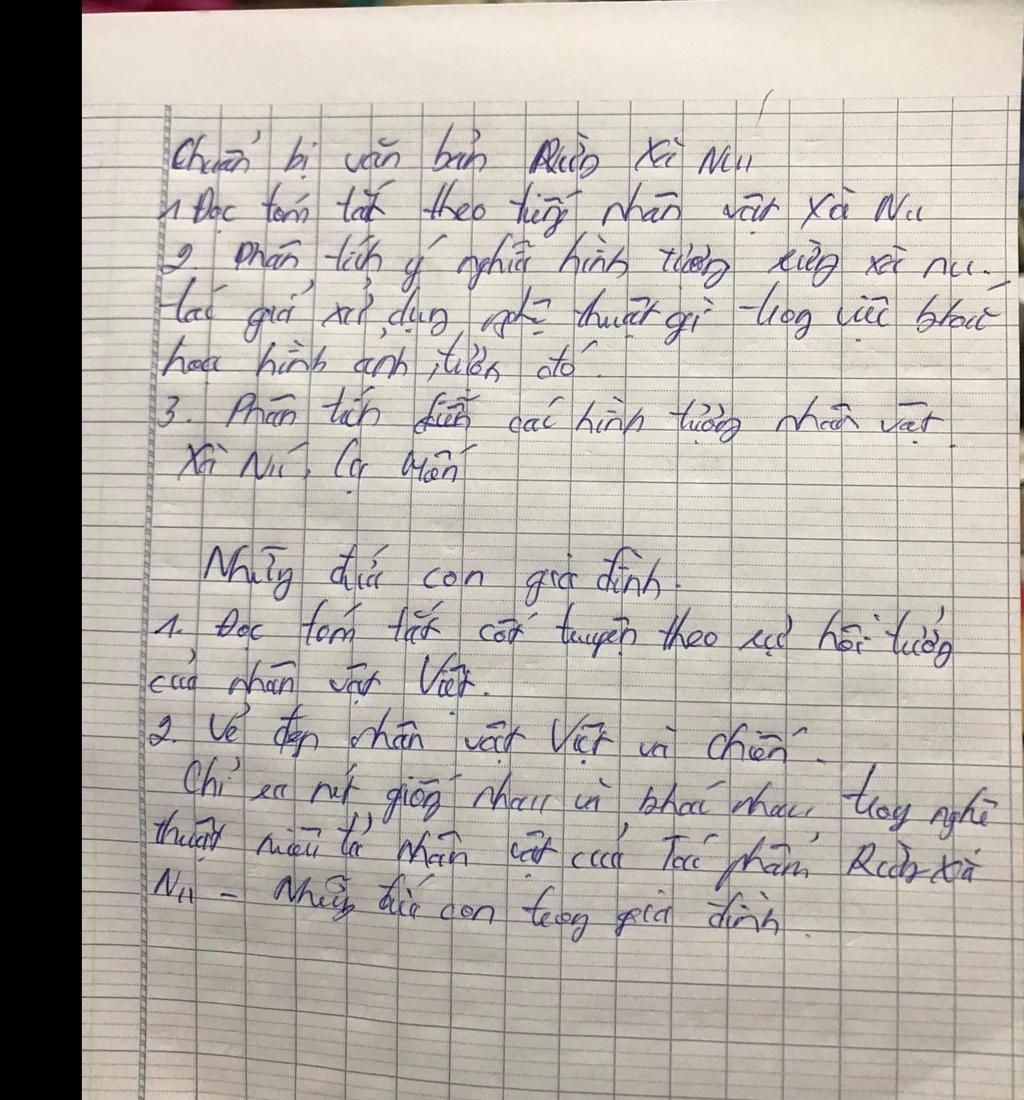 Chuẩn bị văn bản Rừng Xà Nu
1. Đọc tóm tắt theo từng nhân vật Xà Nu
2. Phân tích ý nghĩa hình tượng rừng xà nu.
tác giả sử dụng nghệ thuật gì trong việc khắc
hoạ hình ảnh, trên đó.
3. Phân tích các hình tượng nhân vật
Xà Nú, Cụ Mến
Những đứa con gia đình.
1. Đọc tóm tắt cốt truyện theo sự hồi tưởng
của nhân vật Việt.
2. Vẻ đẹp nhân vật Việt và Chiến.
Chỉ ra nét giống nhau và khác nhau, trong nghệ
thuật miêu tả nhân vật của Tác phẩm Rừng Xà
Nu - Những đứa con trong gia đình.